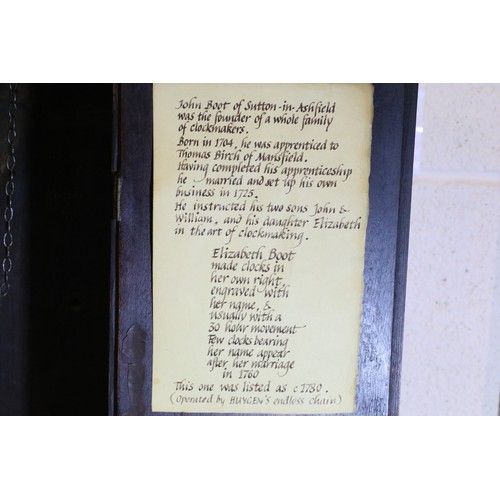 John Boot of Sutton-in-Ashfield
was the founder of a whole family
of clockmakers.
Born in 1704, he was apprenticed to
Thomas Birch of Mansfield.
Having completed his apprenticeship
he married and set up his own
business in 1725.
He instructed his two sons John &
William, and his daughter Elizabeth
in the art of clockmaking.
Elizabeth Boot
made clocks in
her own right,
engraved with
her name, &
usually with a
30 hour movement
Few clocks bearing
her name appear
after her marriage
in 1760
This one was listed as c1780.
(Operated by HUYGEN'S endless chain)